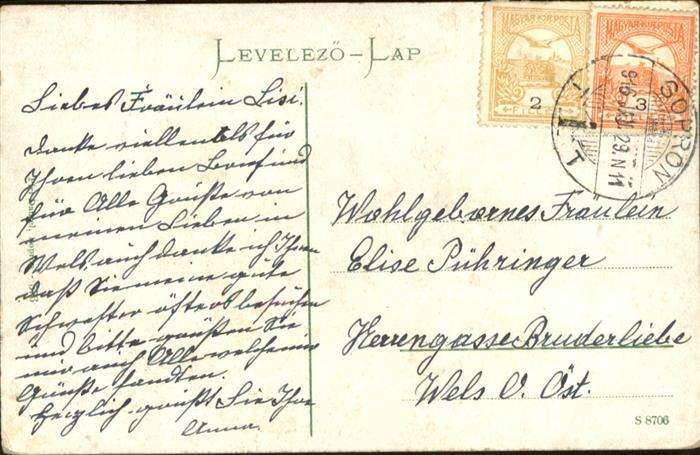 LEVELEZŐ-LAP
MAGYAR KIR. POSTA
2
FILLÉR
MAGYAR KIR. POSTA
3
SOPRON
916 29. N11
Liebes Fräulein Lisi!
Danke vielmals für
Ihren lieben Brief und
für Alle Grüße von
meinen Lieben in
Wels, auch danke ich Ihnen
daß Sie meine gute
Schwester öfters besuchen
und bitte grüßen Sie
mir auch Alle welche mir
Grüße sandten.
Herzlich grüßt Sie Ihre
Anna.
Wohlgebornes Fräulein
Elise Pühringer
Herrengasse Bruderliebe
Wels O. Öst.
S 8706